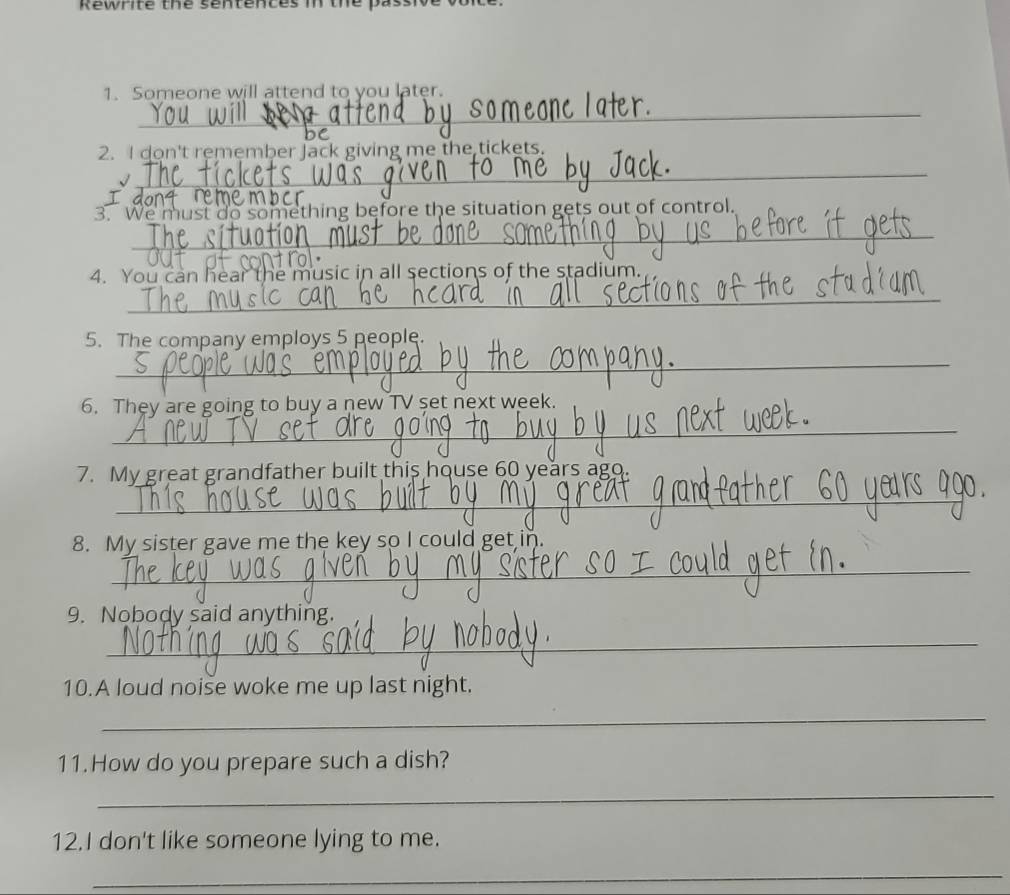 Rewrite the sentences in the passive voice.
1. Someone will attend to you later.
You will be attend by someone later.
2. I don't remember Jack giving me the tickets.
✓ The tickets was given to me by Jack.
I dont remember
3. We must do something before the situation gets out of control.
The situation must be done something by us before it gets
out of control.
4. You can hear the music in all sections of the stadium.
The music can be heard in all sections of the stadium
5. The company employs 5 people.
5 people was employed by the company.
6. They are going to buy a new TV set next week.
A new TV set are going to buy by us next week.
7. My great grandfather built this house 60 years ago.
This house was built by my great grandfather 60 years ago.
8. My sister gave me the key so I could get in.
The key was given by my sister so I could get in.
9. Nobody said anything.
Nothing was said by nobody.
10.A loud noise woke me up last night.
11.How do you prepare such a dish?
12.I don't like someone lying to me.